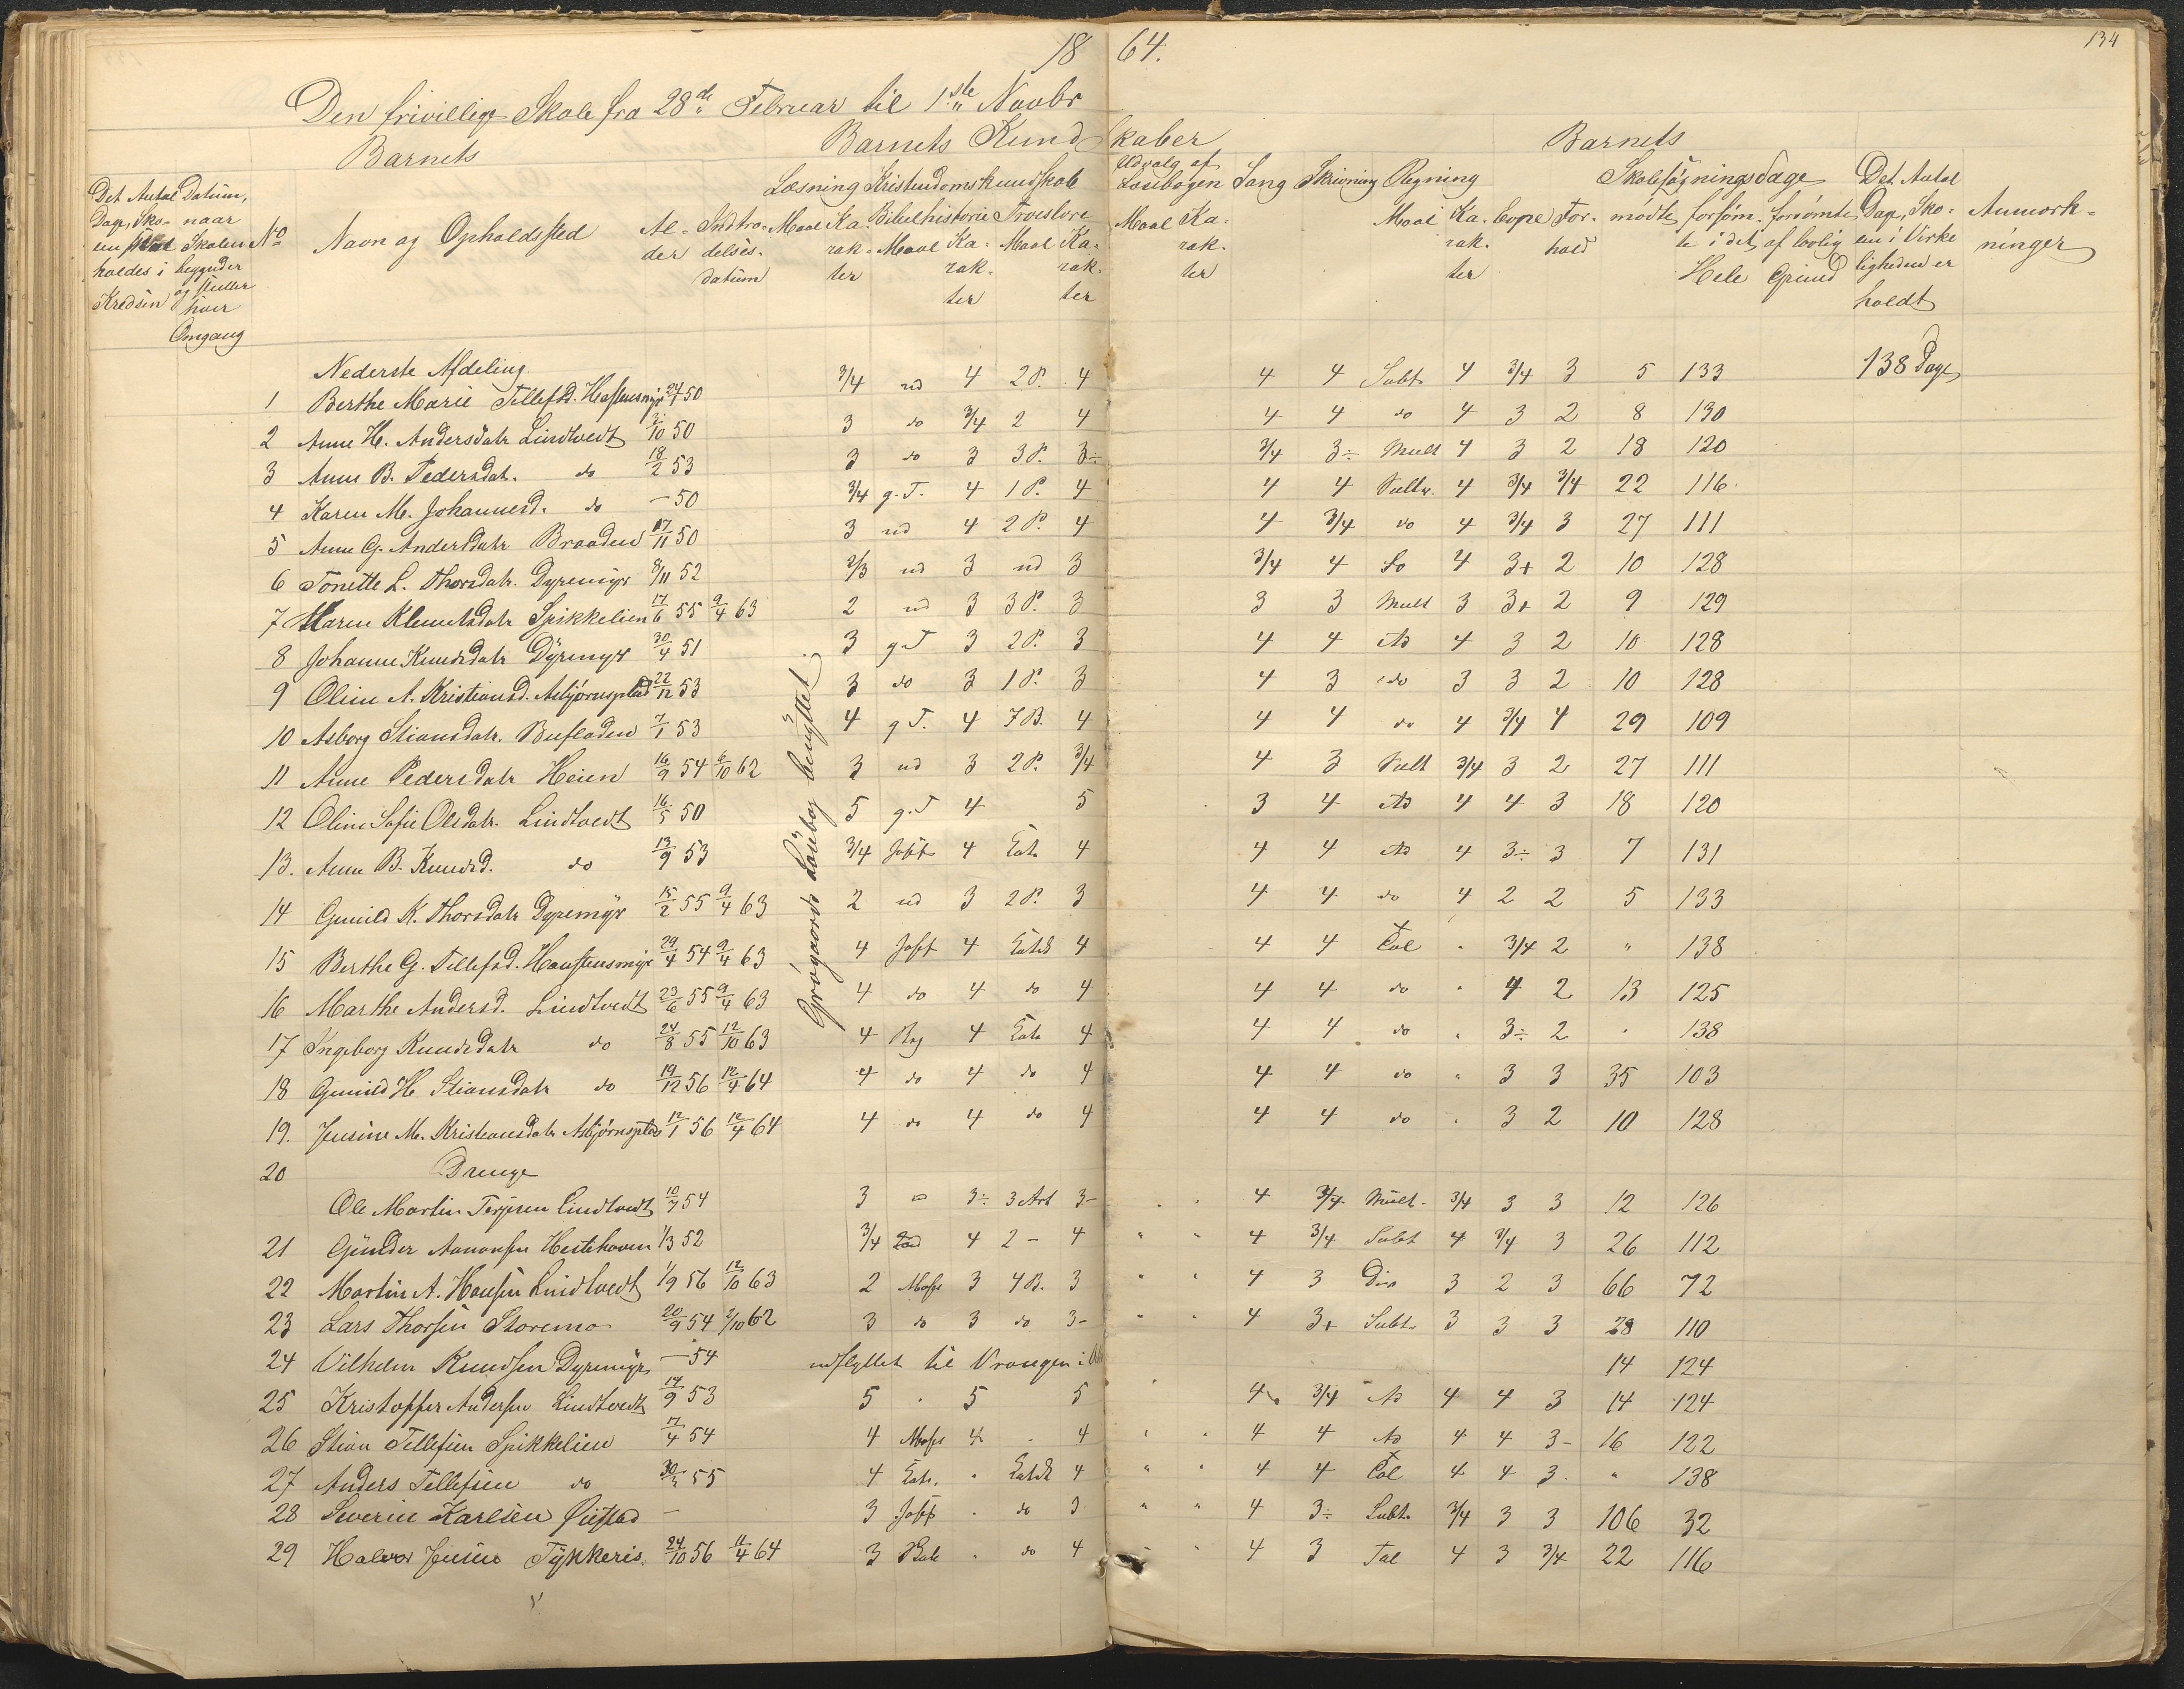 18 64.
134
Den frivillige Skole fra 28de Februar til 1ste Novbr
Barnets Barnets Kundskaber Barnets
Det Antal Dage, Skolen skal holdes i Kredsen
Datum, naar Skolen begynder og slutter hver Omgang
No
Navn og Opholdssted
Alder
Indtrædelses-datum
Læsning Kristendomskundskab
Maal Karakter
Bibelhistorie Maal Karakter
Troeslære Maal Karakter
Udvalg af Læsebogen Maal Karakter
Sang Skrivning Regning
Maal Karakter
Evne Forhold
Skolesøgningsdage
mødte forsømte i det Hele forsømte af lovlig Grund
Det Antal Dage, Skolen i Virkeligheden er holdt
Anmærkninger
Nederste Afdeling
1 Berthe Marie Tellefsd. 50 3/4 ud 4 2 P. 4 4 4 Subt 4 3/4 3 5 133 138 Dage
2 Anne H. Andersdatr Lindtvedt 50 3 do 3/4 2 4 4 4 do 4 3 2 8 130
3 Anne B. Pedersdatr. do 18/2 53 3 do 3 3 P. 3÷ 3/4 3÷ Mult 4 3 2 18 120
4 Karen M. Johannesd. do — 50 3/4 g. T. 4 1 P. 4 4 4 4 3/4 3/4 22 116
5 Anne G. Andersdatr Braaden 17/11 50 3 ud 4 2 P. 4 4 3/4 do 4 3/4 3 27 111
6 Tonette L. Thorsdatr. Dyremyr 8/11 52 2/3 ud 3 ud 3 3/4 4 do 4 3+ 2 10 128
7 Maren Klemetsdatr Spikkelien 17/6 55 9/4 63 2 ud 3 3 P. 3 3 3 Mult 3 3+ 2 9 129
8 Johanne Knudsdatr Dyremyr 30/4 51 3 g. T 3 2 P. 3 4 4 Ad 4 3 2 10 128
9 Oline A. Kristiansd. Asbjørnsplad 22/12 53 3 do 3 1 P. 3 4 3 do 3 3 2 10 128
10 Asborg Stiansdatr. 7/1 53 4 g T. 4 7 B. 4 4 4 do 4 3/4 4 29 109
11 Anne Pedersdatr Heien 16/9 54 6/10 62 3 ud 3 2 P. 3/4 4 3 3/4 3 2 27 111
12 Oline Sofie Olsdatr. Lindtvedt 16/5 50 5 g. T 4 5 3 4 Ad 4 4 3 18 120
13. Anne B. Knudsd. do 13/9 53 3/4 4 4 4 4 Ad 4 3÷ 3 7 131
14 Gunild K. Thorsdatr Dyremyr 15/2 55 9/4 63 2 ud 3 2 P. 3 4 4 do 4 2 2 5 133
15 Berthe G. Tellefsd. 29/4 54 9/4 63 4 4 4 4 4 Tal " 3/4 2 " 138
16 Marthe Andersd. Lindtvedt 23/6 55 9/4 63 4 do 4 do 4 4 4 do " 4 2 13 125
17 Ingeborg Knudsdatr do 24/8 55 12/10 63 4 4 4 4 4 do " 3÷ 2 " 138
18 Gunild H Stiansdatr do 19/12 56 12/4 64 4 do 4 do 4 4 4 do " 3 3 35 103
19. Jensine M. Kristiansdatr Asbjørnsplad 12/1 56 12/4 64 4 do 4 do 4 4 4 do " 3 2 10 128
Grøgaards Læsebog benyttet.
20 Drenge
Ole Martin Terjesen Lindtvedt 10/7 54 3 3÷ 3 Art 3- 4 3/4 Mult. 3/4 3 3 12 126
21 Gunder Aanonsen Hestehaven 1/3 52 3/4 4 2 – 4 " " 4 3/4 Subt 4 3/4 3 26 112
22 Martin A. Hansen Lindtvedt 1/9 56 12/10 63 2 3 4 B. 3 " " 4 3 Div 3 2 3 66 72
23 Lars Thorsen Storemo 20/9 54 2/10 62 3 do 3 do 3- " " 4 3+ Subt. 3 3 3 28 110
24 Vilhelm Knudsen Dyremyr — 54 udflyttet til Vrangen i 14 124
25 Kristoffer Andersen Lindtvedt 14/9 53 5 " 5 5 4 3/4 Ad 4 4 3 14 124
26 Stian Tellefsen Spikkelien 7/4 54 4 4 " 4 " " 4 4 Ad 4 4 3- 16 122
27 Anders Tellefsen do 55 4 " 4 " " 4 4 Tal 4 4 3. " 138
28 Severin Karlsen Øiestad – 3 " do 3 " " 4 3÷ Subt. 3/4 3 3 106 32
29 Halvor Jensen Tykkeris. 24/10 56 11/4 64 3 " do 4 " " 4 3 Tal 4 3 3/4 22 116